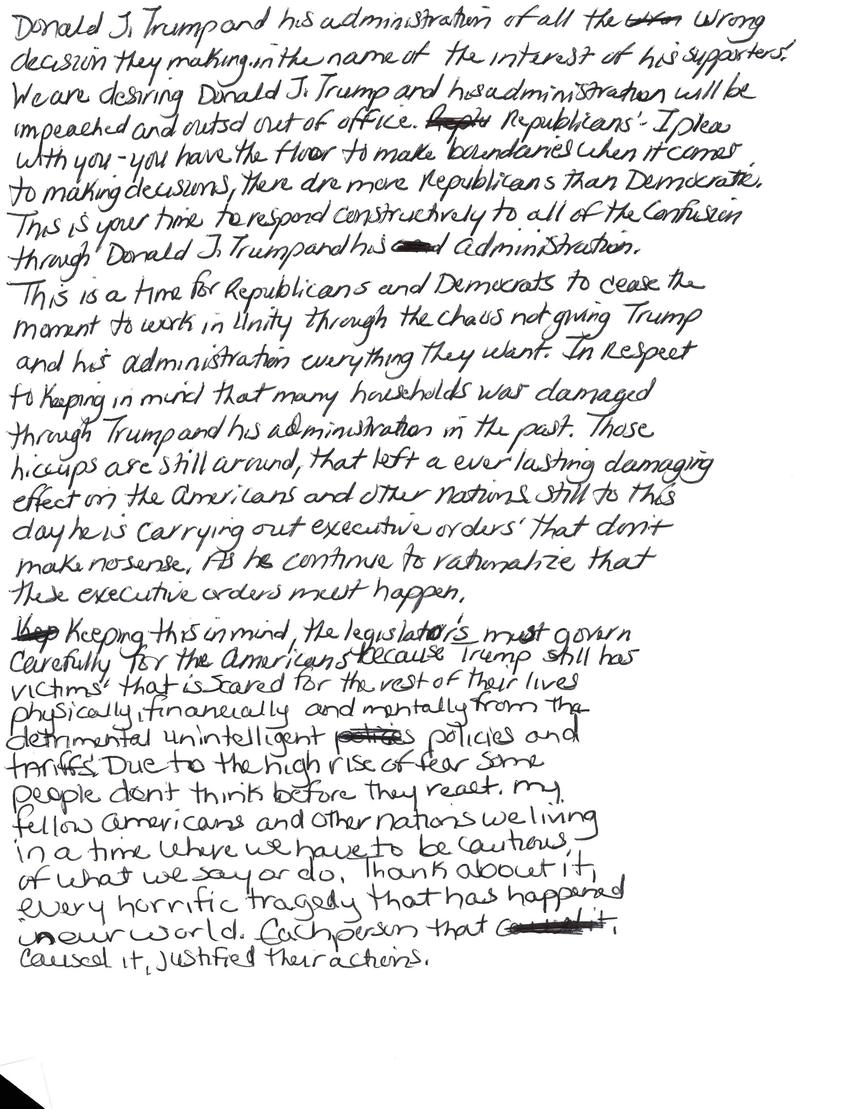 Donald J. Trump and his administration of all the wrong
decision they making in the name of the interest of his supporters.
We are desiring Donald J. Trump and his administration will be
impeached and outsd out of office. Republicans - I plea
with you - you have the floor to make boundaries when it comes
to making decisions, there are more Republicans than Democratic.
This is your time to respond constructively to all of the Confusion
through Donald J. Trump and his administration.
This is a time for Republicans and Democrats to cease the
moment to work in Unity through the chaos not giving Trump
and his administration everything they want. In Respect
to Keeping in mind that many households was damaged
through Trump and his administration in the past. Those
hiccups are still around, that left a ever lasting damaging
effect on the Americans and other Nations still to this
day he is carrying out executive orders' that don't
make no sense. As he continue to rationalize that
these executive orders must happen.
Keeping this in mind, the legislators must govern
Carefully for the Americans because Trump still has
victims' that is scared for the rest of their lives
physically, financially and mentally from the
detrimental unintelligent policies and
tariffs. Due to the high rise of fear some
people don't think before they react. my
fellow Americans and other nations we living
in a time where we have to be cautious,
of what we say or do. Thank about it,
every horrific tragedy that has happened
in our world. Each person that
caused it, justified their actions.